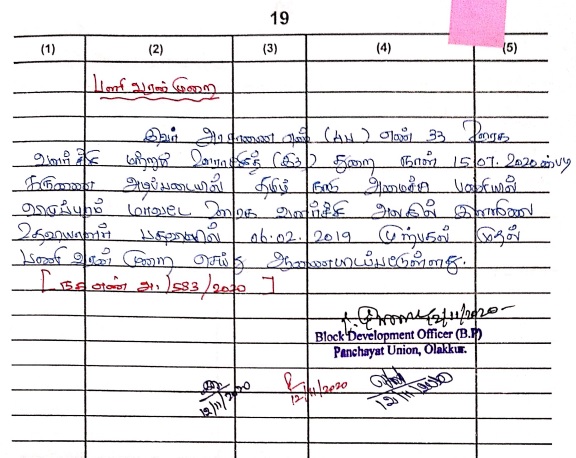 19
(1) (2) (3) (4) (5)
பணி வரன் முறை
இவர் அரசாணை எண் (பல) எண் 33 ஊரக
வளர்ச்சி மற்றும் ஊராட்சித் (இ3) துறை நாள் 15.07.2020ன்படி
கருணை அடிப்படையில் தமிழ் நாடு அமைச்சு பணியில்
விழுப்புரம் மாவட்ட ஊரக வளர்ச்சி அலகில் இளநிலை
உதவியாளர் பணியில் 06.02.2019 முற்பகல் முதல்
பணி வரன் முறை செய்து ஆணையிடப்பட்டுள்ளது.
[ நக எண் அ1/583/2020 ]
12/11/2020
Block Development Officer (B.P)
Panchayat Union, Olakkur.
12/11/2020 12/11/2020 12/11/2020